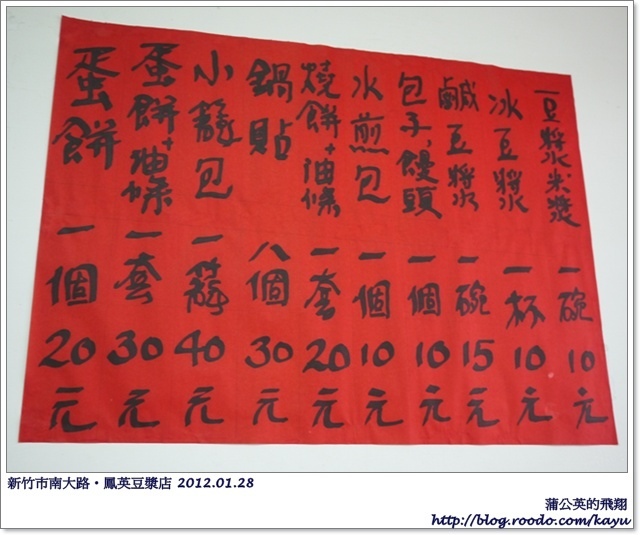 豆漿米漿 一碗 10元
冰豆漿 一杯 10元
鹹豆漿 一碗 15元
包子、饅頭 一個 10元
水煎包 一個 10元
燒餅+油條 一套 20元
鍋貼 八個 30元
小籠包 一籠 40元
蛋餅+油條 一套 30元
蛋餅 一個 20元
新竹市南大路・鳳英豆漿店 2012.01.28
蒲公英的飛翔
http://blog.roodo.com/kayu